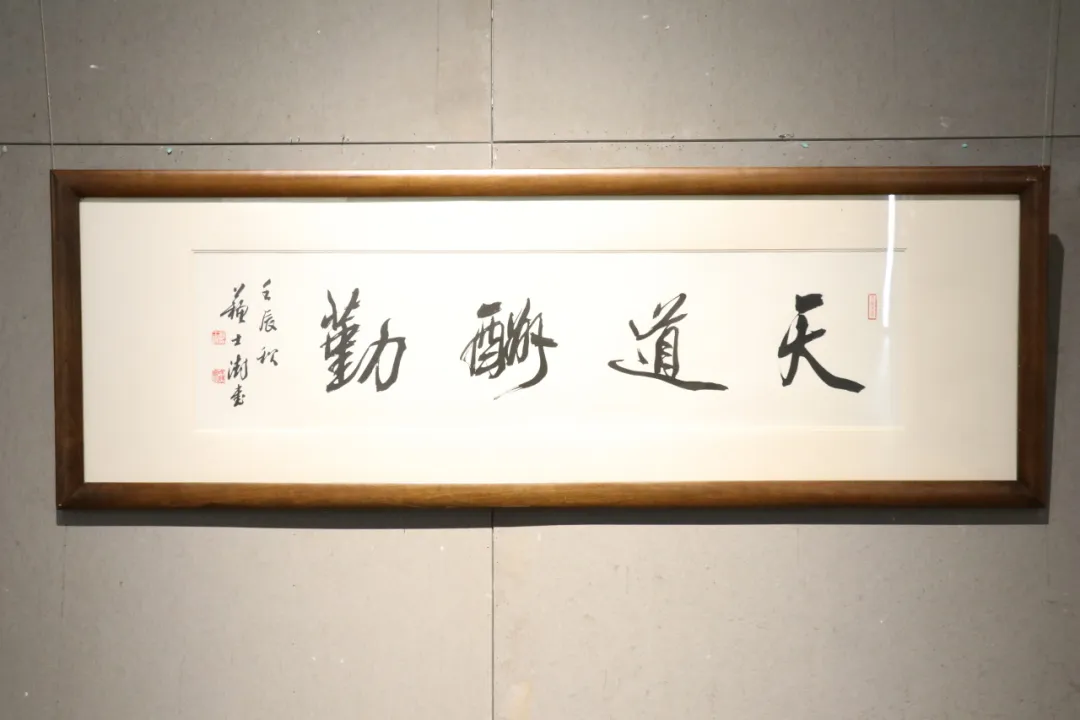 天道酬勤
壬辰秋
蘇士澍書